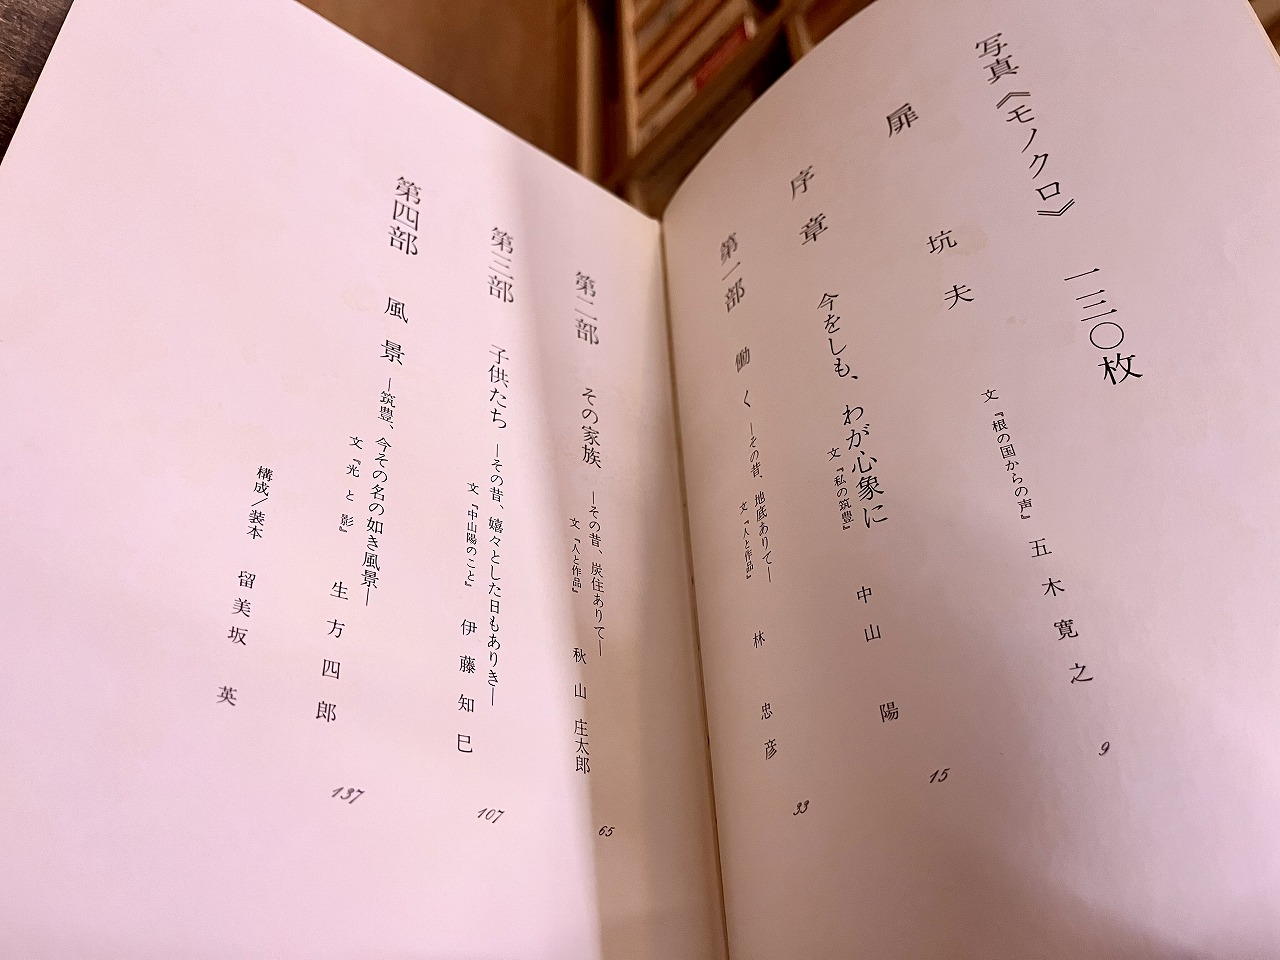 写真《モノクロ》 一三〇枚
扉 坑夫 文『根の国からの声』 五木寛之 9
序章 今をしも、わが心象に
文『私の筑豊』 中山陽 15
第一部 働く ―その昔、地底ありて―
文『人と作品』 林忠彦 33
第二部 その家族 ―その昔、炭住ありて―
文『人と作品』 秋山庄太郎 65
第三部 子供たち ―その昔、嬉々とした日もありき―
文『中山陽のこと』 伊藤知巳 107
第四部 風景 ―筑豊、今その名の如き風景―
文『光と影』 生方四郎 137
構成/装本 留美坂 英